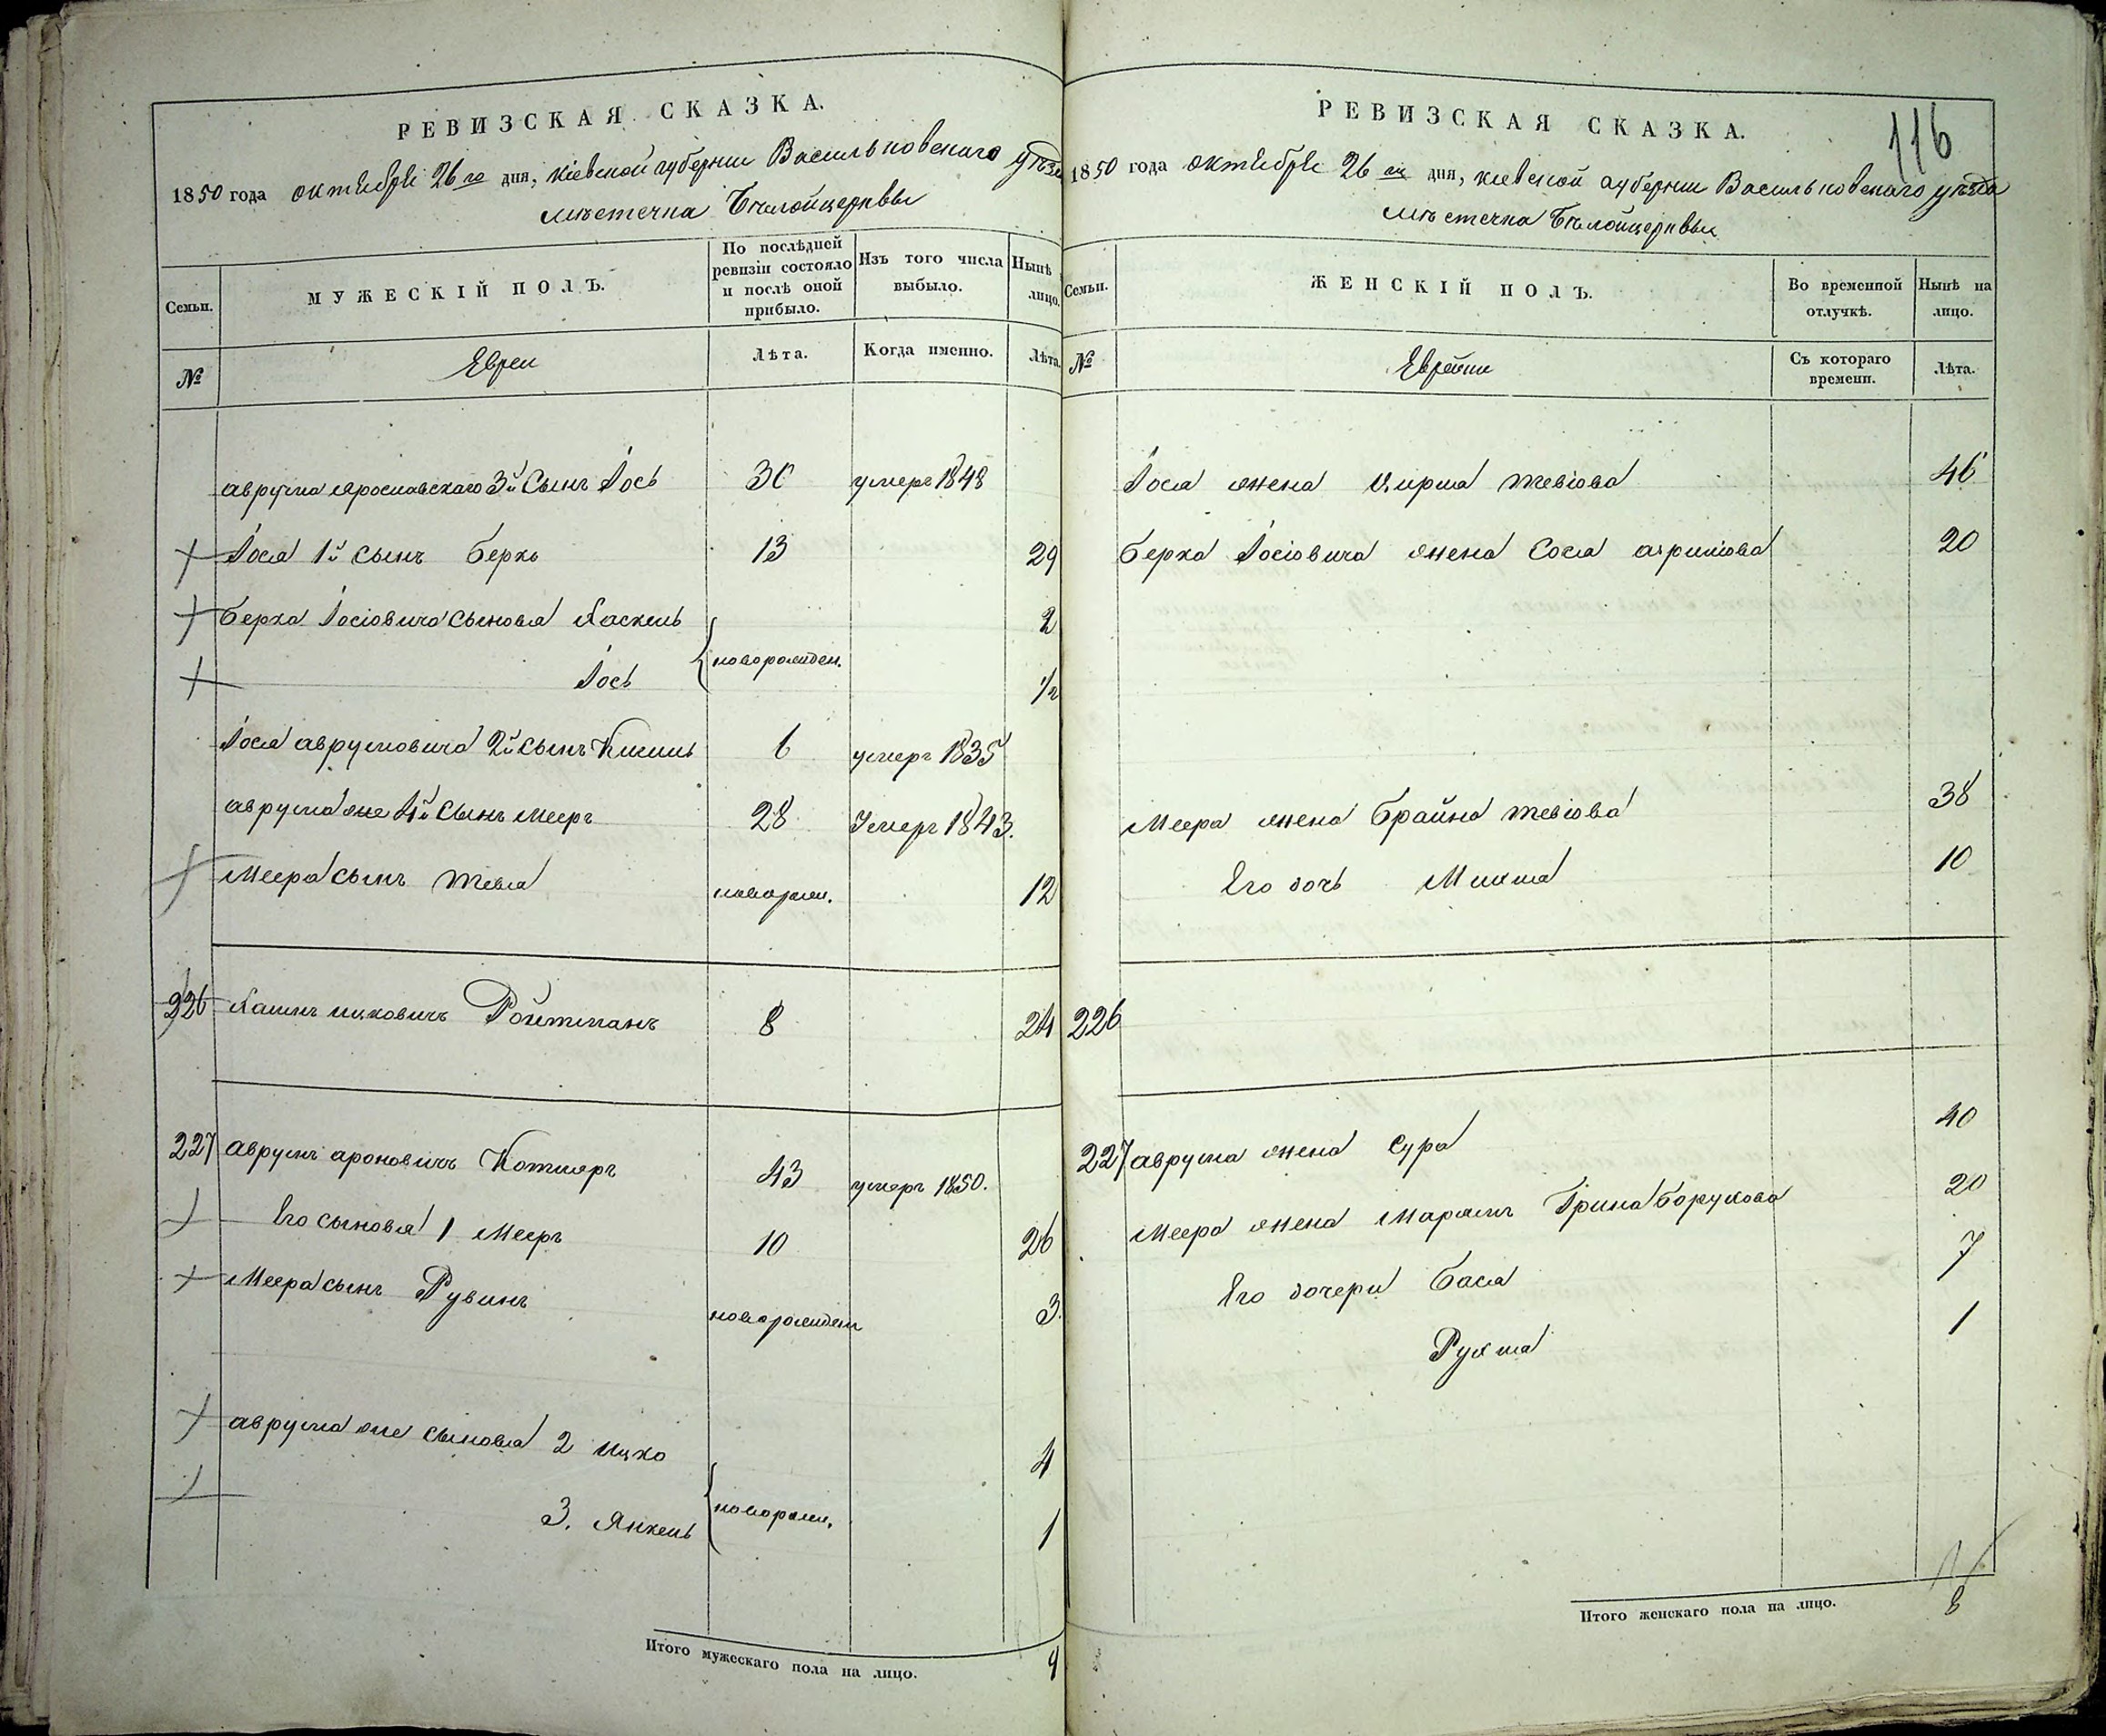 РЕВИЗСКАЯ СКАЗКА.
1850 года октября 26го дня, Кіевской губерніи Васильковского уѣзда
мѣстечка Бѣлойцеркви
Семьи.
МУЖЕСКІЙ ПОЛЪ.
По послѣдней ревизіи состояло и послѣ оной прибыло.
Изъ того числа выбыло.
Нынѣ лицо.
№
Евреи
Лѣта.
Когда именно.
Лѣта.
аврума Ярославскаго 3й Сынъ Іось 30 умеръ 1848
Іося 1й сынъ Берко 13 29
Берка Іосіовича сыновья Хаскель 2
новорожден.
Іось 1/2
Іося аврумовича 2й сынъ Кисиль 6 умеръ 1835
аврума же 4й Сынъ Мееръ 28 Умеръ 1843.
Меера сынъ Тевя новорож. 12
226 Хаимъ ицковичъ Ройтманъ 8 24
227 аврумъ ароновичъ Котляръ 43 умеръ 1850.
Его сыновья 1 Мееръ 10 26
Меера сынъ Рувинъ новорожден 3.
аврума же сыновья 2 ицко 4
новорож.
3. Янкель 1
Итого мужескаго пола на лицо. 9
116
РЕВИЗСКАЯ СКАЗКА.
1850 года октября 26го дня, Кіевской губерніи Васильковскаго уѣзда
мѣстечка Бѣлойцеркви
Семьи.
ЖЕНСКІЙ ПОЛЪ.
Во временной отлучкѣ.
Нынѣ на лицо.
№
Еврейки
Съ котораго времени.
Лѣта.
Іося жена Цирля Тевіова 46
Берка Іосіовича жена Сося 20
Меера жена Брайна Тевіова 38
Его дочь 10
226
227 аврума жена Сура 40
Меера жена Борухова 20
Его дочери Бася 7
Рухля 1
Итого женскаго пола на лицо. 8